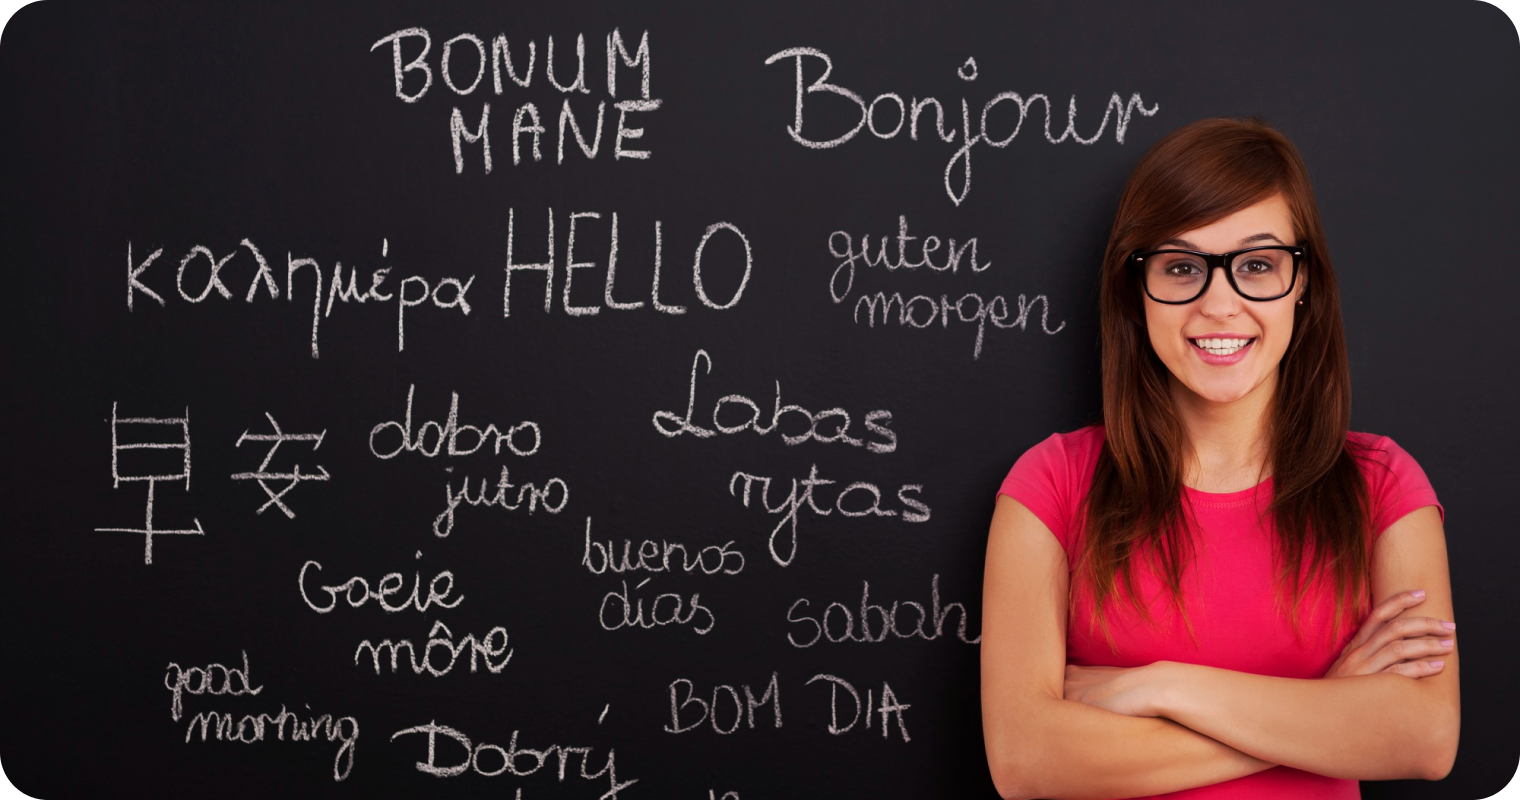 BONUM
MANE
Bonjour
καλημέρα
HELLO
guten
morgen
早
dobro
jutro
Labas
rytas
buenos
días
Goeie
môre
sabah
good
morning
BOM DIA
Dobrý